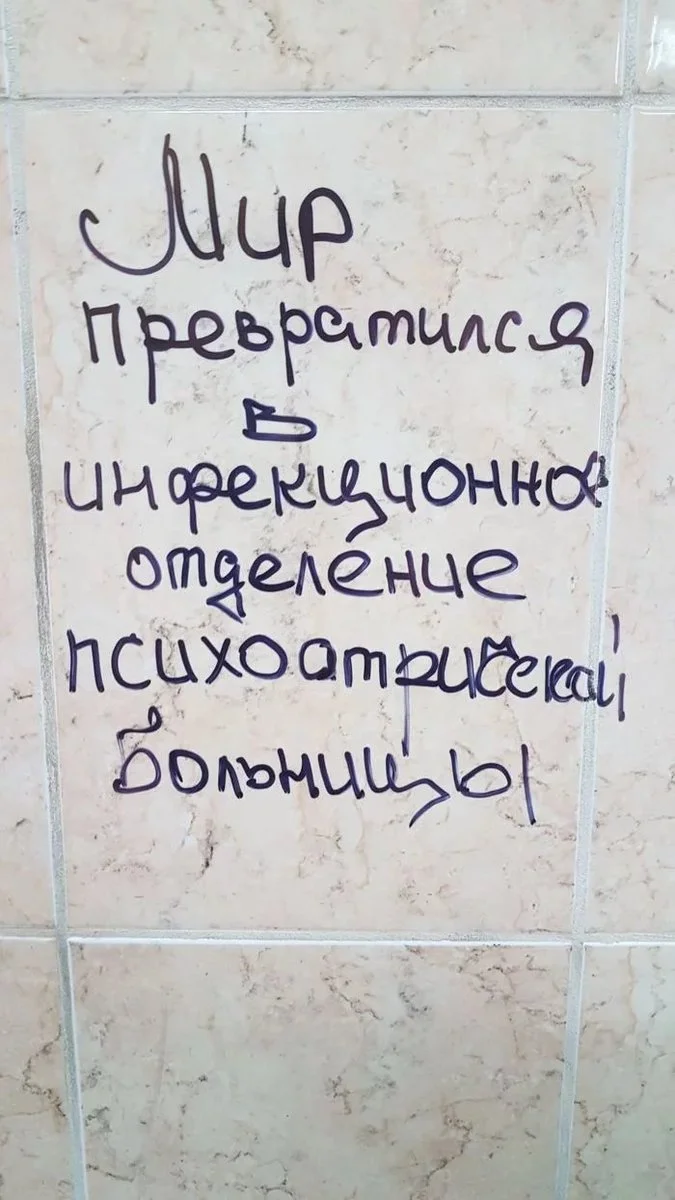 Мир
превратился
в
инфекционное
отделение
психоатрической
больницы